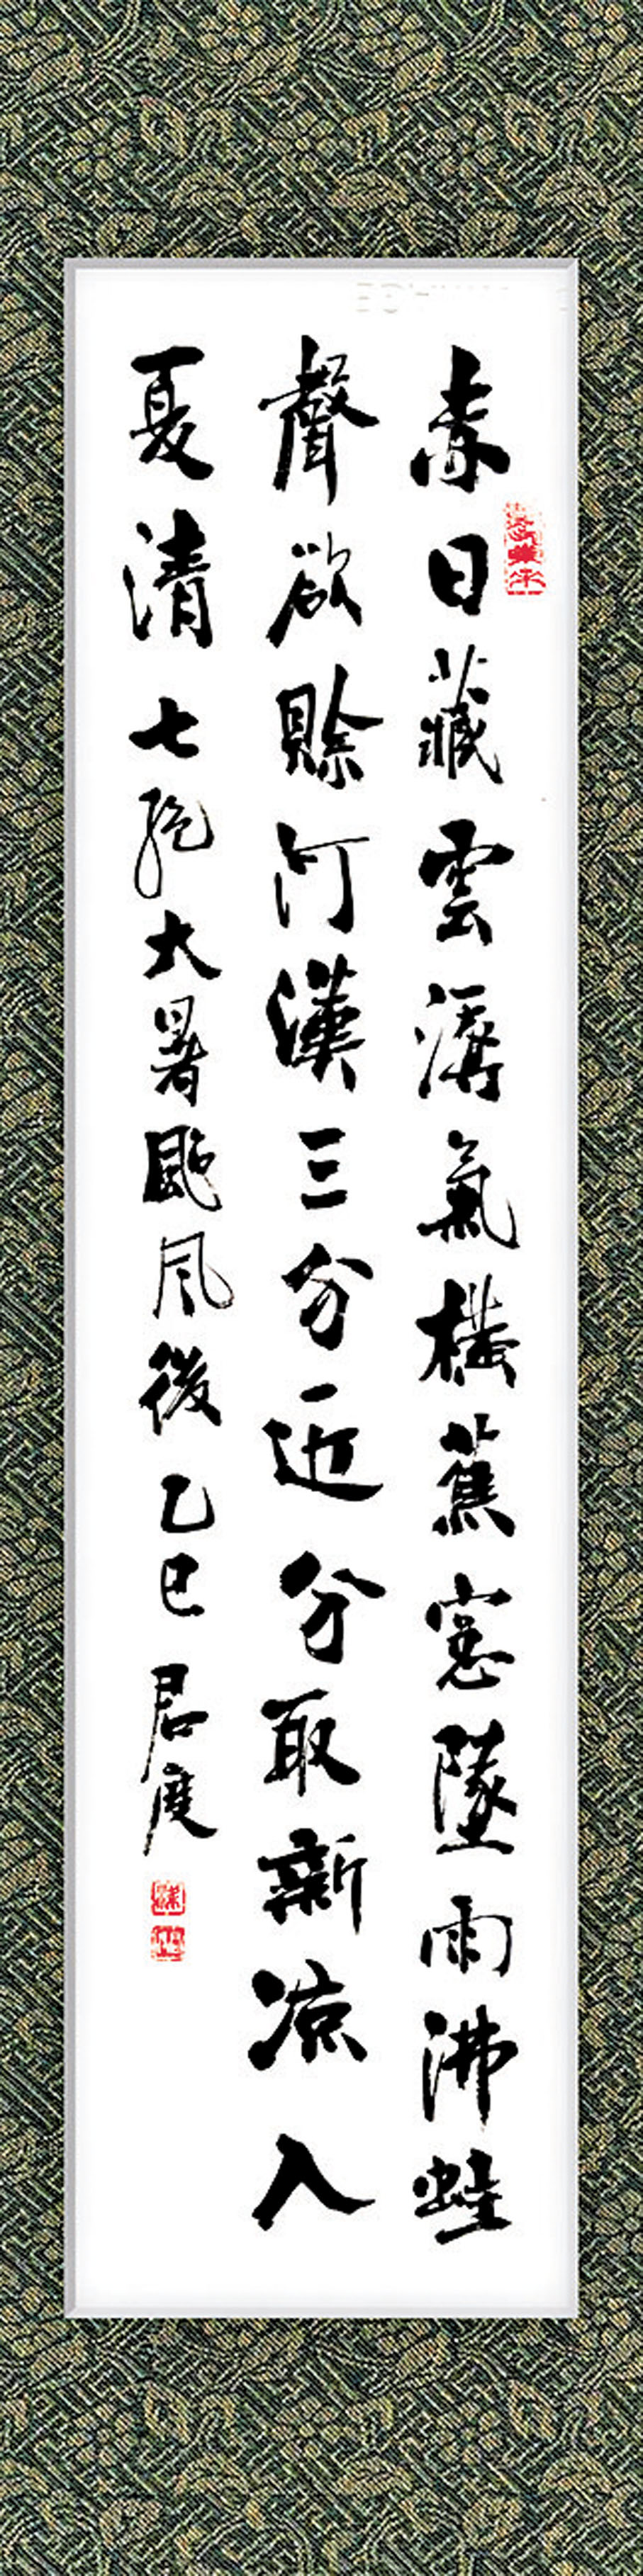 赤日藏雲溽氣橫蕉窓墜雨沸蛙
聲欲賒河漢三分近分取新凉入
夏清 七絕大暑颱風後 乙巳 君度